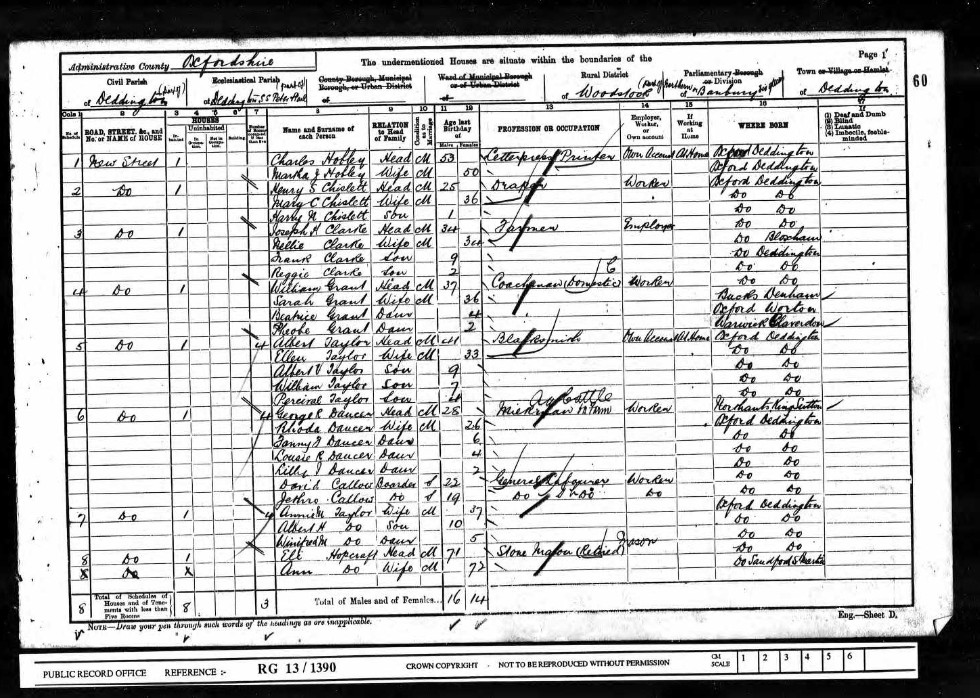 Administrative County Oxfordshire
The undermentioned Houses are situate within the boundaries of the
Page 1
60
Civil Parish
of Deddington (part of)
Ecclesiastical Parish
of Deddington SS Peter & Paul (part of)
County Borough, Municipal Borough, or Urban District
Ward of Municipal Borough or of Urban District
of
Rural District
of Woodstock
Parliamentary Borough or Division
of Banbury
Town or Village or Hamlet
of Deddington
Cols 1 2 3 4 5 6 7 8 9 10 11 12 13 14 15 16 17
No. of Schedule
ROAD, STREET, &c., and No. or NAME of HOUSE
HOUSES
Inhabited
Uninhabited
In Occupation
Not in Occupation
Building
Name and Surname of each Person
RELATION to Head of Family
Condition as to Marriage
Age last Birthday of
Males Females
PROFESSION OR OCCUPATION
Employer, Worker, or Own account
If Working at Home
WHERE BORN
(1) Deaf and Dumb
(2) Blind
(3) Lunatic
(4) Imbecile, feeble-minded
1 New Street 1 Charles Hobley Head M 53 Letterpress Printer Own Account At Home Oxford Deddington
Martha J Hobley Wife M 50 Oxford Deddington
2 Do 1 Henry S Chislett Head M 25 Draper Worker Oxford Deddington
Mary C Chislett Wife M 36 Do Do
Harry N Chislett Son 1 Do Do
3 Do 1 Joseph H Clarke Head M 34 Farmer Employer Do Do
Nellie Clarke Wife M 34 Do Bloxham
Frank Clarke Son 9 Do Deddington
Reggie Clarke Son 2 Do Do
4 Do 1 William Grant Head M 37 Coachman (Domestic) Worker Do Do
Sarah Grant Wife M 36 Bucks Denham
Beatrice Grant Daur 4 Oxford Worton
Pheobe Grant Daur 2 Warwick Claverdon
5 Do 1 4 Albert Taylor Head M 41 Blacksmith Own Account At Home Oxford Deddington
Ellen Taylor Wife M 33 Do Do
Albert V Taylor Son 9 Do Do
William Taylor Son 7 Do Do
Percival Taylor Son 4 Do Do
6 Do 1 4 George R Dancer Head M 28 Milkman on Farm Worker Northants King Sutton
Ag Cattle
Rhoda Dancer Wife M 26 Oxford Deddington
Fanny S Dancer Daur 6 Do Do
Lousie R Dancer Daur 4 Do Do
Lilly J Dancer Daur 2 Do Do
David Callow Boarder S 22 General Labourer Worker Do Do
Jethro Callow Do S 19 Do Do Do Do Do
7 Do 1 4 Annie M Taylor Wife M 37 Oxford Deddington
Albert H Do Son 10 Do Do
Winifred M Do Daur 5 Do Do
8 Do 1 Eli Hopcraft Head M 71 Stone Mason (Retired) Mason Do Do
X Do X Ann Do Wife M 72 Do Sandford St Martin
8 Total of Schedules of Houses and of Tenements with less than Five Rooms 8 3 Total of Males and of Females... 16 14
NOTE—Draw your pen through such words of the headings as are inapplicable.
Eng.—Sheet D.
PUBLIC RECORD OFFICE REFERENCE :- RG 13/1390 CROWN COPYRIGHT - NOT TO BE REPRODUCED WITHOUT PERMISSION
CM SCALE 1 2 3 4 5 6